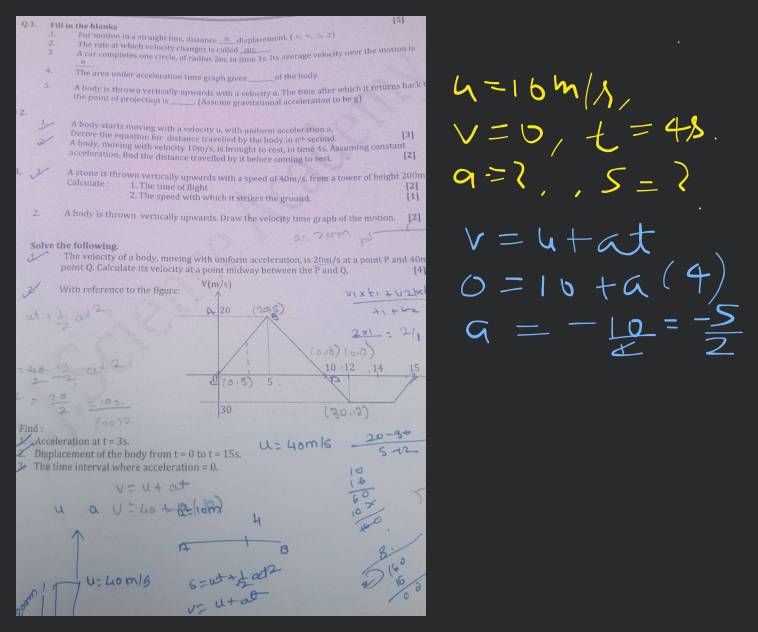 Q.1. Fill in the blanks [5]
1. For motion in a straight line, distance displacement.
2. The rate at which velocity changes is called
3. A car completes one circle, of radius 2m, in time 1s. Its average velocity over the motion is
4. The area under acceleration time graph gives ______ of the body.
5. A body is thrown vertically upwards with a velocity u. The time after which it returns back t
the point of projection is ______. (Assume gravitational acceleration to be g)
2.
1. A body starts moving with a velocity u, with uniform acceleration a.
Derive the equation for distance travelled by the body in nth second. [3]
2. A body, moving with velocity 10m/s, is brought to rest, in time 4s. Assuming constant
acceleration, find the distance travelled by it before coming to rest. [2]
A stone is thrown vertically upwards with a speed of 40m/s, from a tower of height 200m
Calculate : 1. The time of flight [2]
2. The speed with which it strikes the ground. [1]
2. A body is thrown vertically upwards. Draw the velocity time graph of the motion. [2]
a = 20m
Solve the following.
The velocity of a body, moving with uniform acceleration, is 20m/s at a point P and 40m
point Q. Calculate its velocity at a point midway between the P and Q. [4]
With reference to the figure:
V(m/s)
A 20
(0.5) 5
10 12 14 15
30
(30,12)
Find :
1. Acceleration at t = 3s.
2. Displacement of the body from t = 0 to t = 15s.
3. The time interval where acceleration = 0.
u = 40m/s
20-30
5-12
v = u + at
u a
4
A B
u = 40m/s
s = ut + 1/2 at2
v = u + at
8
160
16
00
u = 10 m/s,
v = 0, t = 4s.
a = ?, , s = ?
v = u + at
0 = 10 + a (4)
a = - 10/4 = -5/2